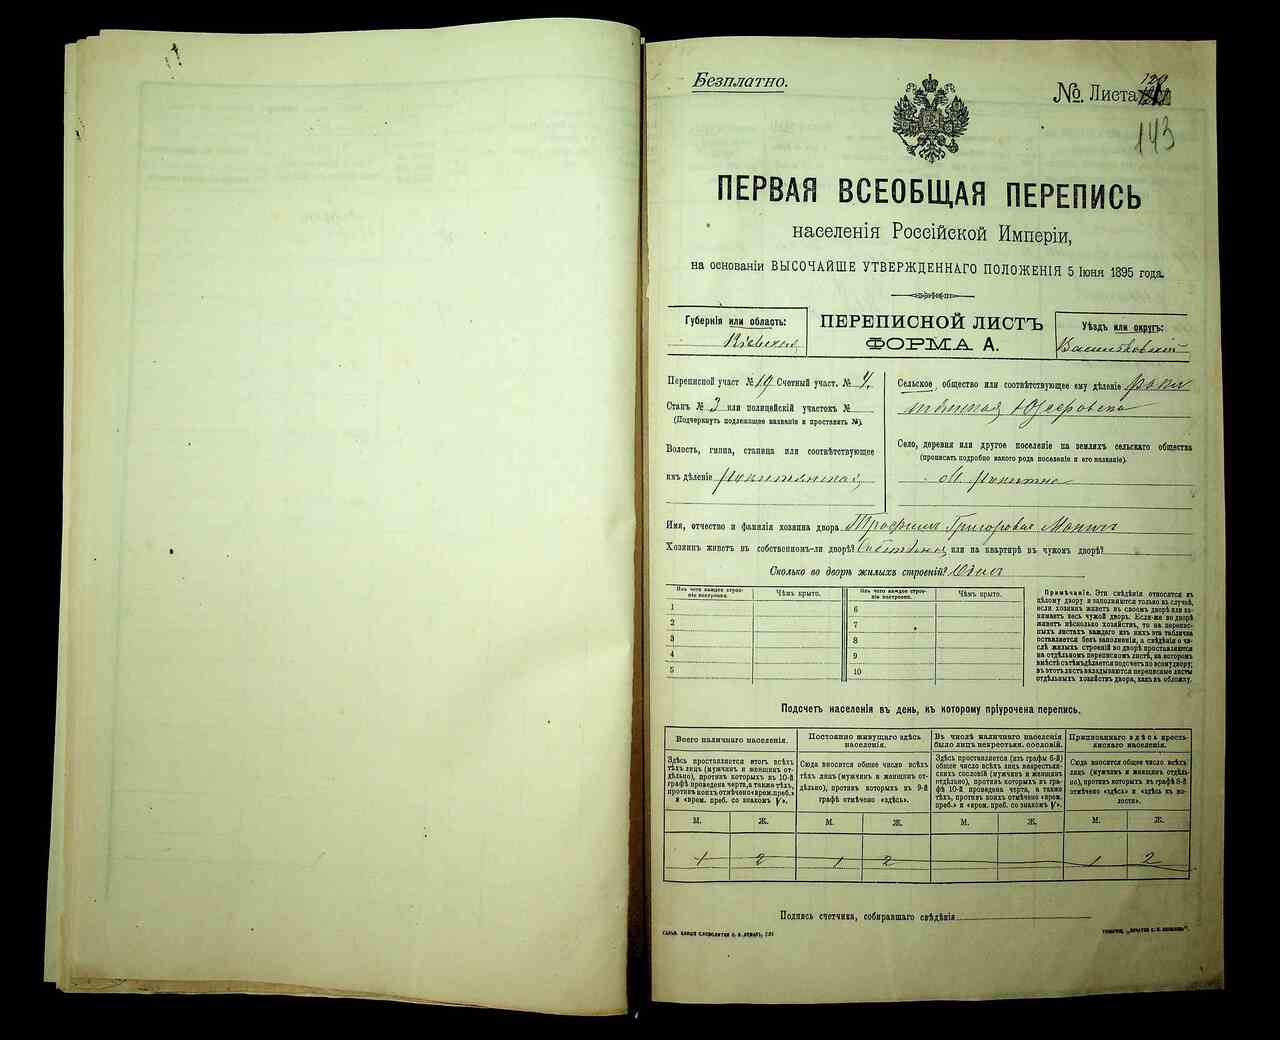 Безплатно.
№ Листа 120
143
ПЕРВАЯ ВСЕОБЩАЯ ПЕРЕПИСЬ
населенія Россійской Имперіи,
на основаніи ВЫСОЧАЙШЕ УТВЕРЖДЕННАГО ПОЛОЖЕНІЯ 5 Іюня 1895 года.
Губернія или область:
Кіевская
ПЕРЕПИСНОЙ ЛИСТЪ
ФОРМА А.
Уѣздъ или округъ:
Васильковскій
Переписной участ № 19 Счетный участ. № 4.
Станъ № 3 или полицейскій участокъ №
(Подчеркнуть подлежащее названіе и проставить №).
Волость, гмина, станица или соотвѣтствующее
имъ дѣленіе
Сельское, общество или соотвѣтствующее ему дѣленіе
Село, деревня или другое поселеніе на земляхъ сельскаго общества
(прописать подробно какого рода поселеніе и его названіе).
М. Рокитно
Имя, отчество и фамилія хозяина двора Трофимъ Григоровъ
Хозяинъ живетъ въ собственномъ-ли дворѣ? или на квартирѣ въ чужомъ дворѣ?
Сколько во дворѣ жилыхъ строеній? Одно
Изъ чего каждое строе-
ніе построено.
Чѣмъ крыто.
1
2
3
4
5
Изъ чего каждое строе-
ніе построено.
Чѣмъ крыто.
6
7
8
9
10
Примѣчаніе. Эти свѣдѣнія относятся къ
цѣлому двору и заполняются только въ случаѣ,
если хозяинъ живетъ въ своемъ дворѣ или за-
нимаетъ весь чужой дворъ. Если-же во дворѣ
живетъ нѣсколько хозяйствъ, то на перепис-
ныхъ листахъ каждаго изъ нихъ эта табличка
оставляется безъ заполненія, а свѣдѣнія о чи-
слѣ жилыхъ строеній во дворѣ проставляются
на отдѣльномъ переписномъ листѣ, на которомъ
вмѣстѣ съ тѣмъ дѣлается подсчетъ по всему двору;
въ этотъ листъ вкладываются переписные листы
отдѣльныхъ хозяйствъ двора, какъ въ обложку.
Подсчетъ населенія въ день, къ которому пріурочена перепись.
Всего наличнаго населенія.
Здѣсь проставляется итогъ всѣхъ
тѣхъ лицъ (мужчинъ и женщинъ от-
дѣльно), противъ которыхъ въ 10-й
графѣ проведена черта, а также тѣхъ,
противъ коихъ отмѣчено «врем. преб.»
и «врем. преб. со знакомъ V».
М. Ж.
1 2
Постоянно живущаго здѣсь
населенія.
Сюда вносится общее число всѣхъ
тѣхъ лицъ (мужчинъ и женщинъ от-
дѣльно), противъ которыхъ въ 9-й
графѣ отмѣчено «здѣсь».
М. Ж.
1 2
Въ числѣ наличнаго населенія
было лицъ некрестьян. сословій.
Здѣсь проставляется (изъ графы 6-й)
общее число всѣхъ некрестьян-
скихъ сословій (мужчинъ и женщинъ
отдѣльно), противъ которыхъ въ гра-
фѣ 10-й проведена черта, а также
тѣхъ, противъ коихъ отмѣчено «врем.
преб.» и «врем. преб. со знакомъ V».
М. Ж.
Приписаннаго здѣсь кресть-
янскаго населенія.
Сюда вносится общее число всѣхъ
лицъ (мужчинъ и женщинъ отдѣль-
но), противъ которыхъ въ графѣ 8-й
отмѣчено «здѣсь» и «здѣсь въ во-
лости».
М. Ж.
1 2
Подпись счетчика, собиравшаго свѣдѣнія